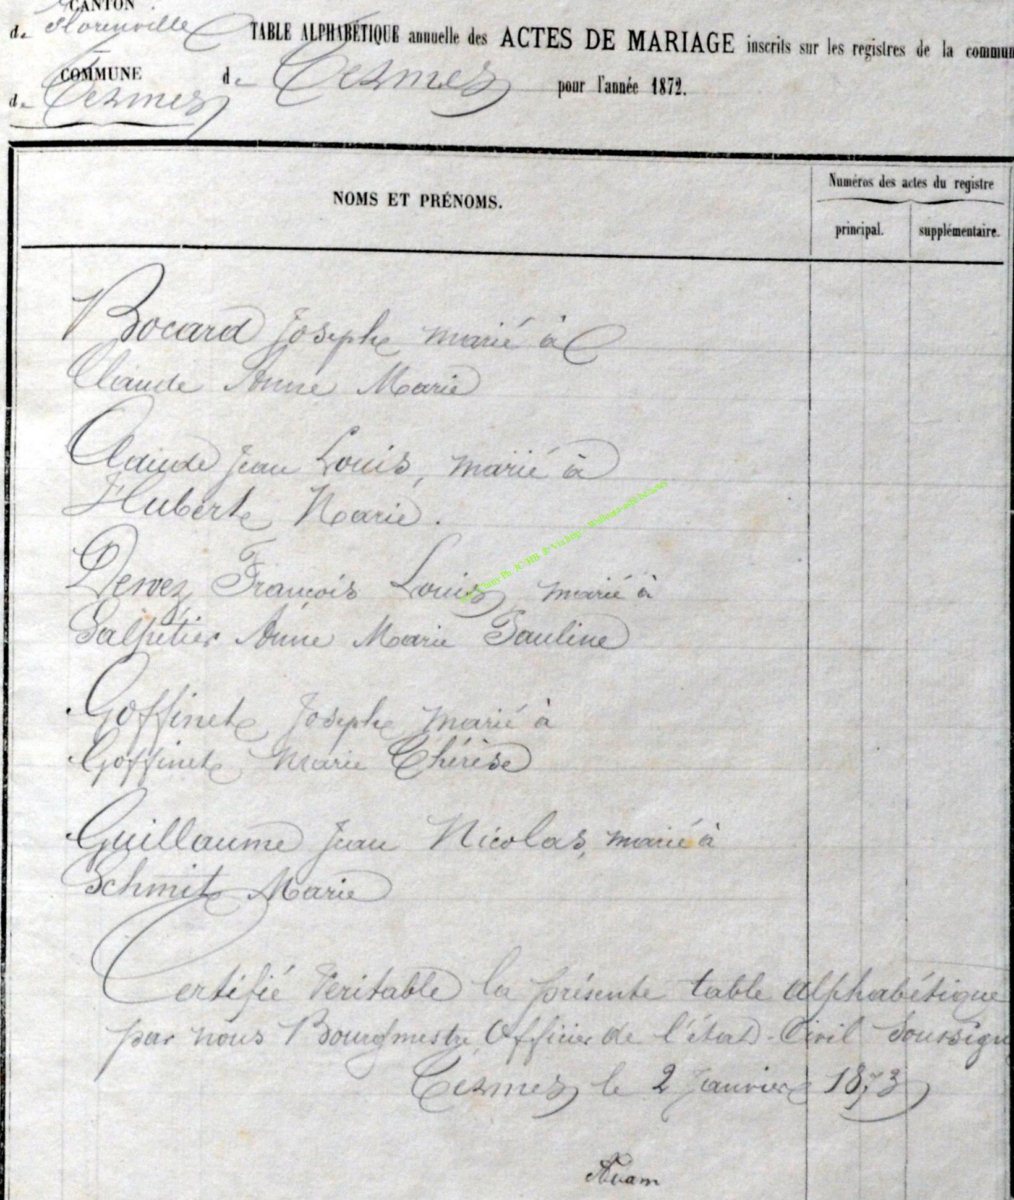 CANTON
de Florenville
COMMUNE
de Termes
TABLE ALPHABÉTIQUE annuelle des ACTES DE MARIAGE inscrits sur les registres de la commun
de Termes pour l'année 1872.
NOMS ET PRÉNOMS.
Numéros des actes du registre
principal.
supplémentaire.
Bocard Joseph marié à
Claude Anne Marie
Claude Jean Louis, marié à
Hubert Marie.
Dervez François Louis, marié à
Salpétier Anne Marie Pauline
Goffinet Joseph marié à
Goffinet Marie Thérèse
Guillaume Jean Nicolas, marié à
Schmit Marie
Certifié Véritable la présente table alphabétique
par nous Bourgmestre, Officier de l'état-Civil Soussign
Termes le 2 Janvier 1873